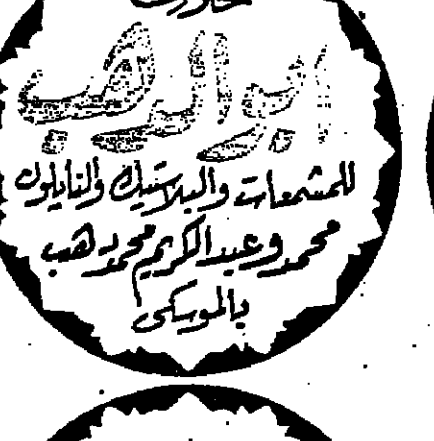 ابو الدهب
للمشمعات والبلاستيك والنايلون
محمد وعبد الكريم محمد دهب
بالموسكى